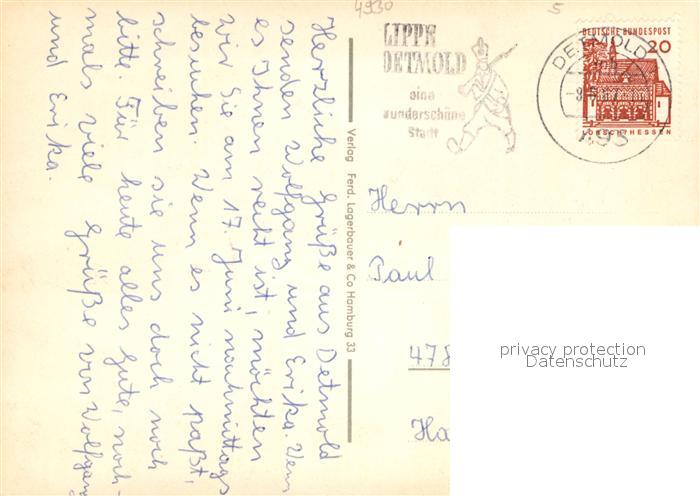 4930
5
LIPPE
DETMOLD
eine
wunderschöne
Stadt
DETMOLD
493
DEUTSCHE BUNDESPOST
20
LORSCH/HESSEN
Herzliche Grüße aus Detmold
senden Wolfgang und Erika. Wenn
es Ihnen recht ist, möchten
wir Sie am 17. Juni nachmittags
besuchen. Wenn es nicht paßt,
schreiben sie uns doch noch
bitte. Für heute alles Gute, noch-
mals viele Grüße von Wolfgang
und Erika.
Verlag Ferd. Lagerbauer & Co Hamburg 33
Herrn
Paul
478
Ha
privacy protection
Datenschutz